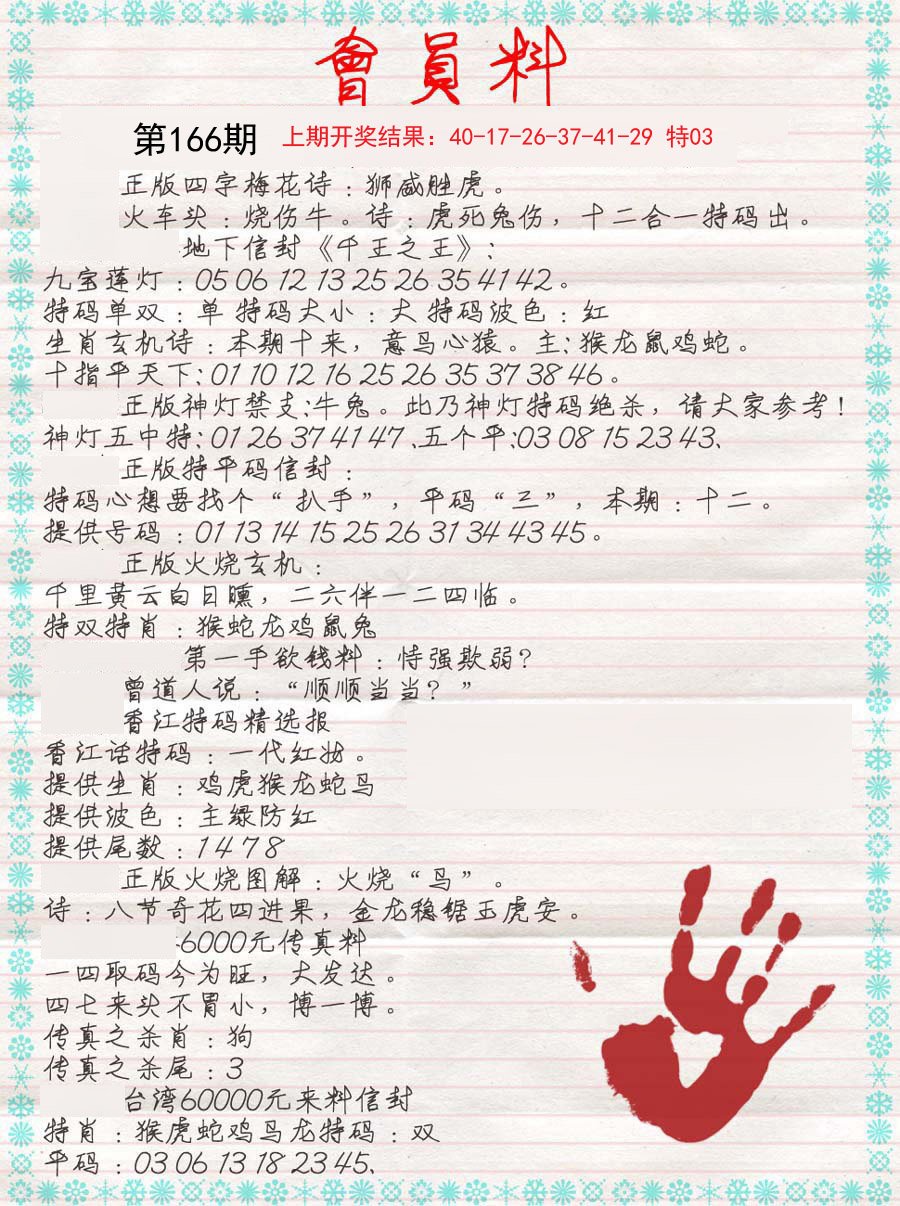 會員料
第166期 上期开奖结果：40-17-26-37-41-29 特03
正版四字梅花诗：狮威胜虎。
火车头：烧伤牛。诗：虎死兔伤，十二合一特码出。
地下信封《千王之王》：
九宝莲灯：05 06 12 13 25 26 35 41 42。
特码单双：单 特码大小：大 特码波色：红
生肖玄机诗：本期十来，意马心猿。主：猴龙鼠鸡蛇。
十指平天下：01 10 12 16 25 26 35 37 38 46。
正版神灯禁支：牛兔。此乃神灯特码绝杀，请大家参考！
神灯五中特：01 26 37 41 47、五个平：03 08 15 23 43、
正版特平码信封：
特码心想要找个“扒手”，平码“三”，本期：十二。
提供号码：01 13 14 15 25 26 31 34 43 45。
正版火烧玄机：
千里黄云白日曛，二六伴一二四临。
特双特肖：猴蛇龙鸡鼠兔
第一手欲钱料：恃强欺弱？
曾道人说：“顺顺当当？”
香江特码精选报
香江话特码：一代红妆。
提供生肖：鸡虎猴龙蛇马
提供波色：主绿防红
提供尾数：1 4 7 8
正版火烧图解：火烧“马”。
诗：八节奇花四进果，金龙稳锯玉虎安。
6000元传真料
一四取码今为旺，大发达。
四七来头不冒小，博一博。
传真之杀肖：狗
传真之杀尾：3
台湾60000元来料信封
特肖：猴虎蛇鸡马龙特码：双
平码：03 06 13 18 23 45、